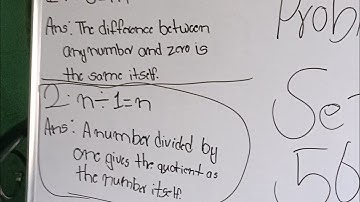 Ans: The difference between
any number and zero is
the same itself.
2. n ÷ 1 = n
Ans: A number divided by
one gives the quotient as
the number itself.
Prob
Se
56